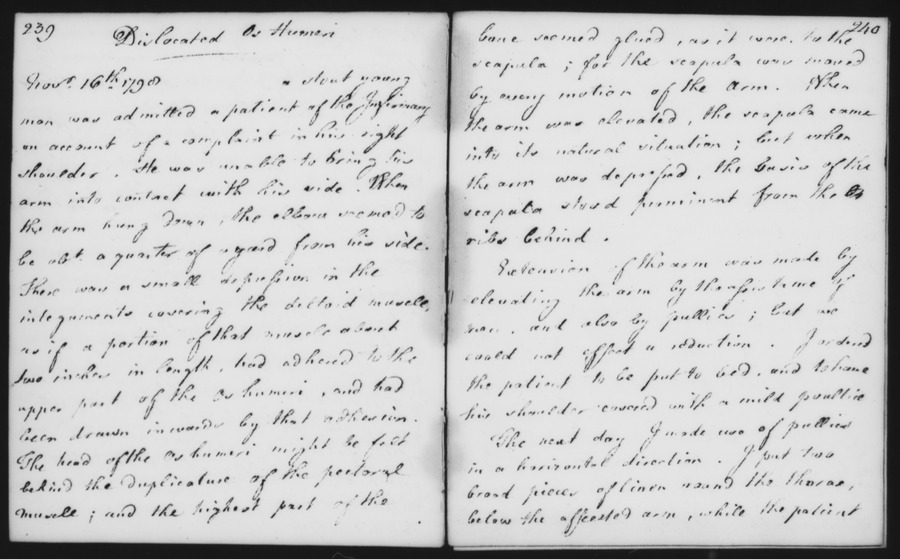 239
Dislocated Os Humeri
Novr. 16th. 1798 a stout young
man was admitted a patient of the Infirmary
on account of a complaint in his right
shoulder. He was unable to bring his
arm into contact with his side. When
the arm hung down, the elbow seemed to
be abt. a quarter of a yard from his side.
There was a small depression in the
integuments covering the deltoid muscle,
as if a portion of that muscle about
two inches in length, had adhered to the
upper part of the os humeri, and had
been drawn inwards by that adhesion.
The head of the os humeri might be felt
behind the duplicature of the pectoral
muscle; and the highest part of the
240
bone seemed glued, as it were, to the
scapula; for the scapula was moved
by every motion of the arm. When
the arm was elevated, the scapula came
into its natural situation; but when
the arm was depressed, the basis of the
scapula stood prominent from the
ribs behind.
Extension of the arm was made by
elevating the arm by the strength of
men, and also by pullies; but we
could not effect a reduction. I ordered
the patient to be put to bed, and to have
his shoulder covered with a mild poultice
The next day I made use of pullies
in a horizontal direction. I put two
broad pieces of linen round the thorax,
below the affected arm, while the patient